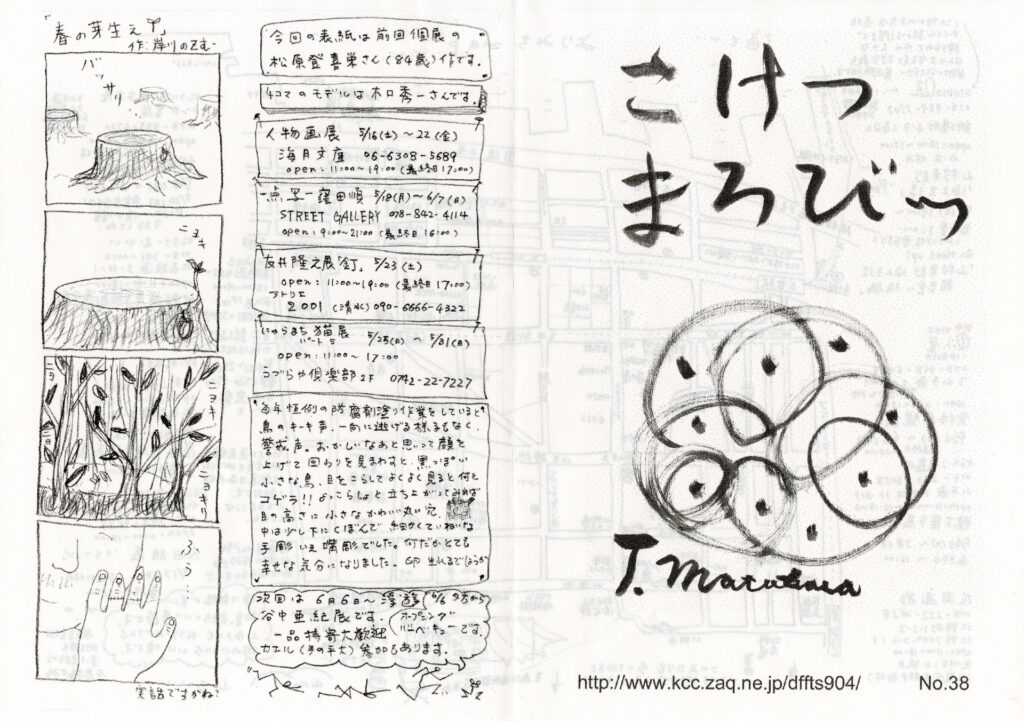 「春の芽生え」
作:岸リのぞむ
バッサリ
ニョキ
ニョ
ニョキ
ニョキリ
ふう
実話ですかね?
今回の表紙は前回個展の
松原登喜栄さん(84歳)作です。
4コマのモデルは木口秀一さんです。
人物画展 5/16(土)~22(金)
海月文庫 06-6308-5689
open:11:00~19:00(最終日17:00)
一点展 一窪田順 5/18(月)~6/7(日)
STREET GALLERY 078-842-4114
open:9:00~21:00(最終日16:00)
友井隆之展「釘」 5/23(土)
open:11:00~19:00(最終日17:00)
アトリエ
2001 (清水)090-6666-4322
にゃらまち猫展
パート5 5/25(月)~5/31(日)
open:11:00~17:00
うづらや倶楽部2F 0742-22-7227
毎年恒例の防腐剤塗り作業をしていると
鳥のキーキ声、一向に逃げる様子もなく
警戒声。おかしいなあと思って顔を
上げて回わりを見まわすと、黒っぽい
小さな鳥、目をこらしてよくよく見ると何と
コゲラ!!よっこらしょと立ち上がってみれば
目の高さに小さなかわいい丸い穴
中は少し下にくぼんで細かくていねいな
手彫いえ嘴彫でした。何だかとても
幸せな気分になりました。 生れるでしょうか
次回は6月6日~
谷中亜紀展です。
6/6 夕方から
オープニング
バーベキューです。
一品持寄大歓迎
カエル(手の平大)参加もあります。
こけつ
まろびつ
T. Matubara
http://www.kcc.zaq.ne.jp/dffts904/
No.38